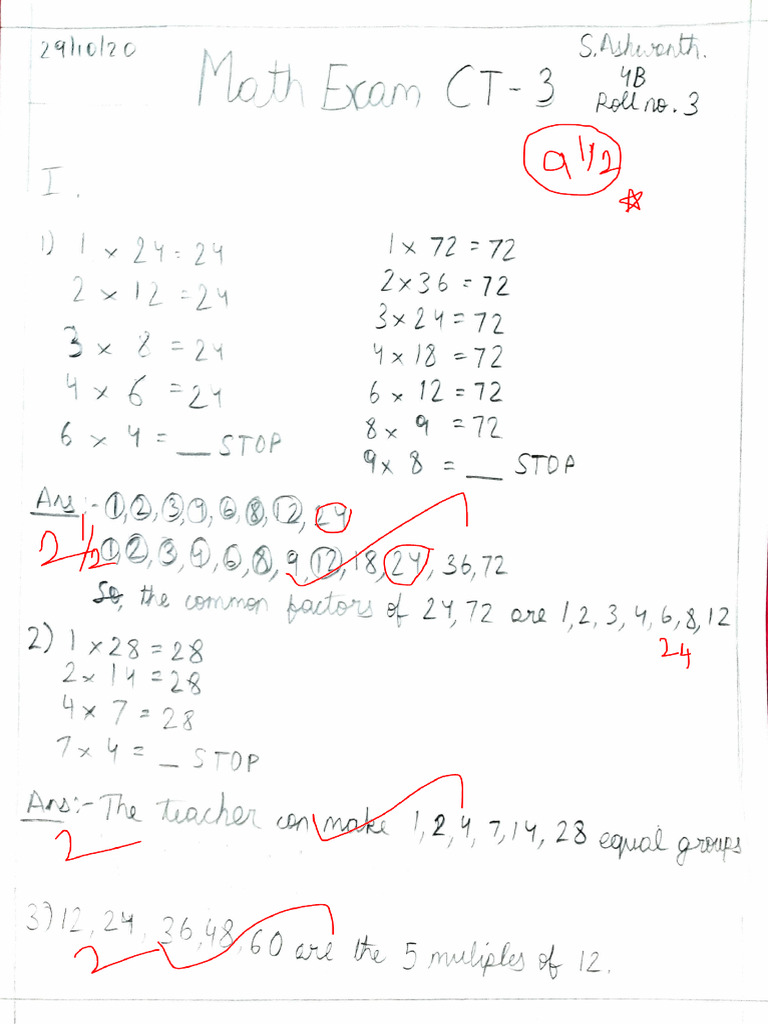 29/10/20
Math Exam CT-3
S.Ashwanth.
4B
Roll no. 3
9 1/2
I.
1) 1 x 24 = 24
2 x 12 = 24
3 x 8 = 24
4 x 6 = 24
6 x 4 = __ STOP
1 x 72 = 72
2 x 36 = 72
3 x 24 = 72
4 x 18 = 72
6 x 12 = 72
8 x 9 = 72
9 x 8 = __ STOP
Ans:- 1, 2, 3, 4, 6, 8, 12, 24
2 1/2 1, 2, 3, 4, 6, 8, 9, 12, 18, 24, 36, 72
So, the common factors of 24, 72 are 1, 2, 3, 4, 6, 8, 12
24
2) 1 x 28 = 28
2 x 14 = 28
4 x 7 = 28
7 x 4 = _ STOP
Ans:- The teacher can make 1, 2, 4, 7, 14, 28 equal groups
2
3) 12, 24, 36, 48, 60 are the 5 muliples of 12.
2